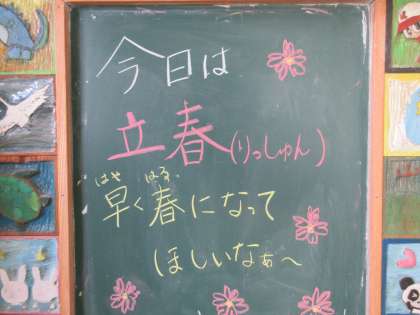 今日は
立春(りっしゅん)
はや はる
早く春になって
ほしいなぁ〜